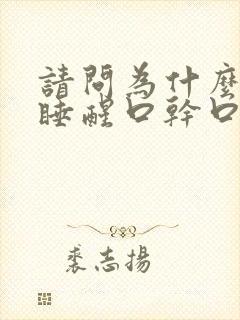 請問為什麼
睡醒口幹口
裘志揚